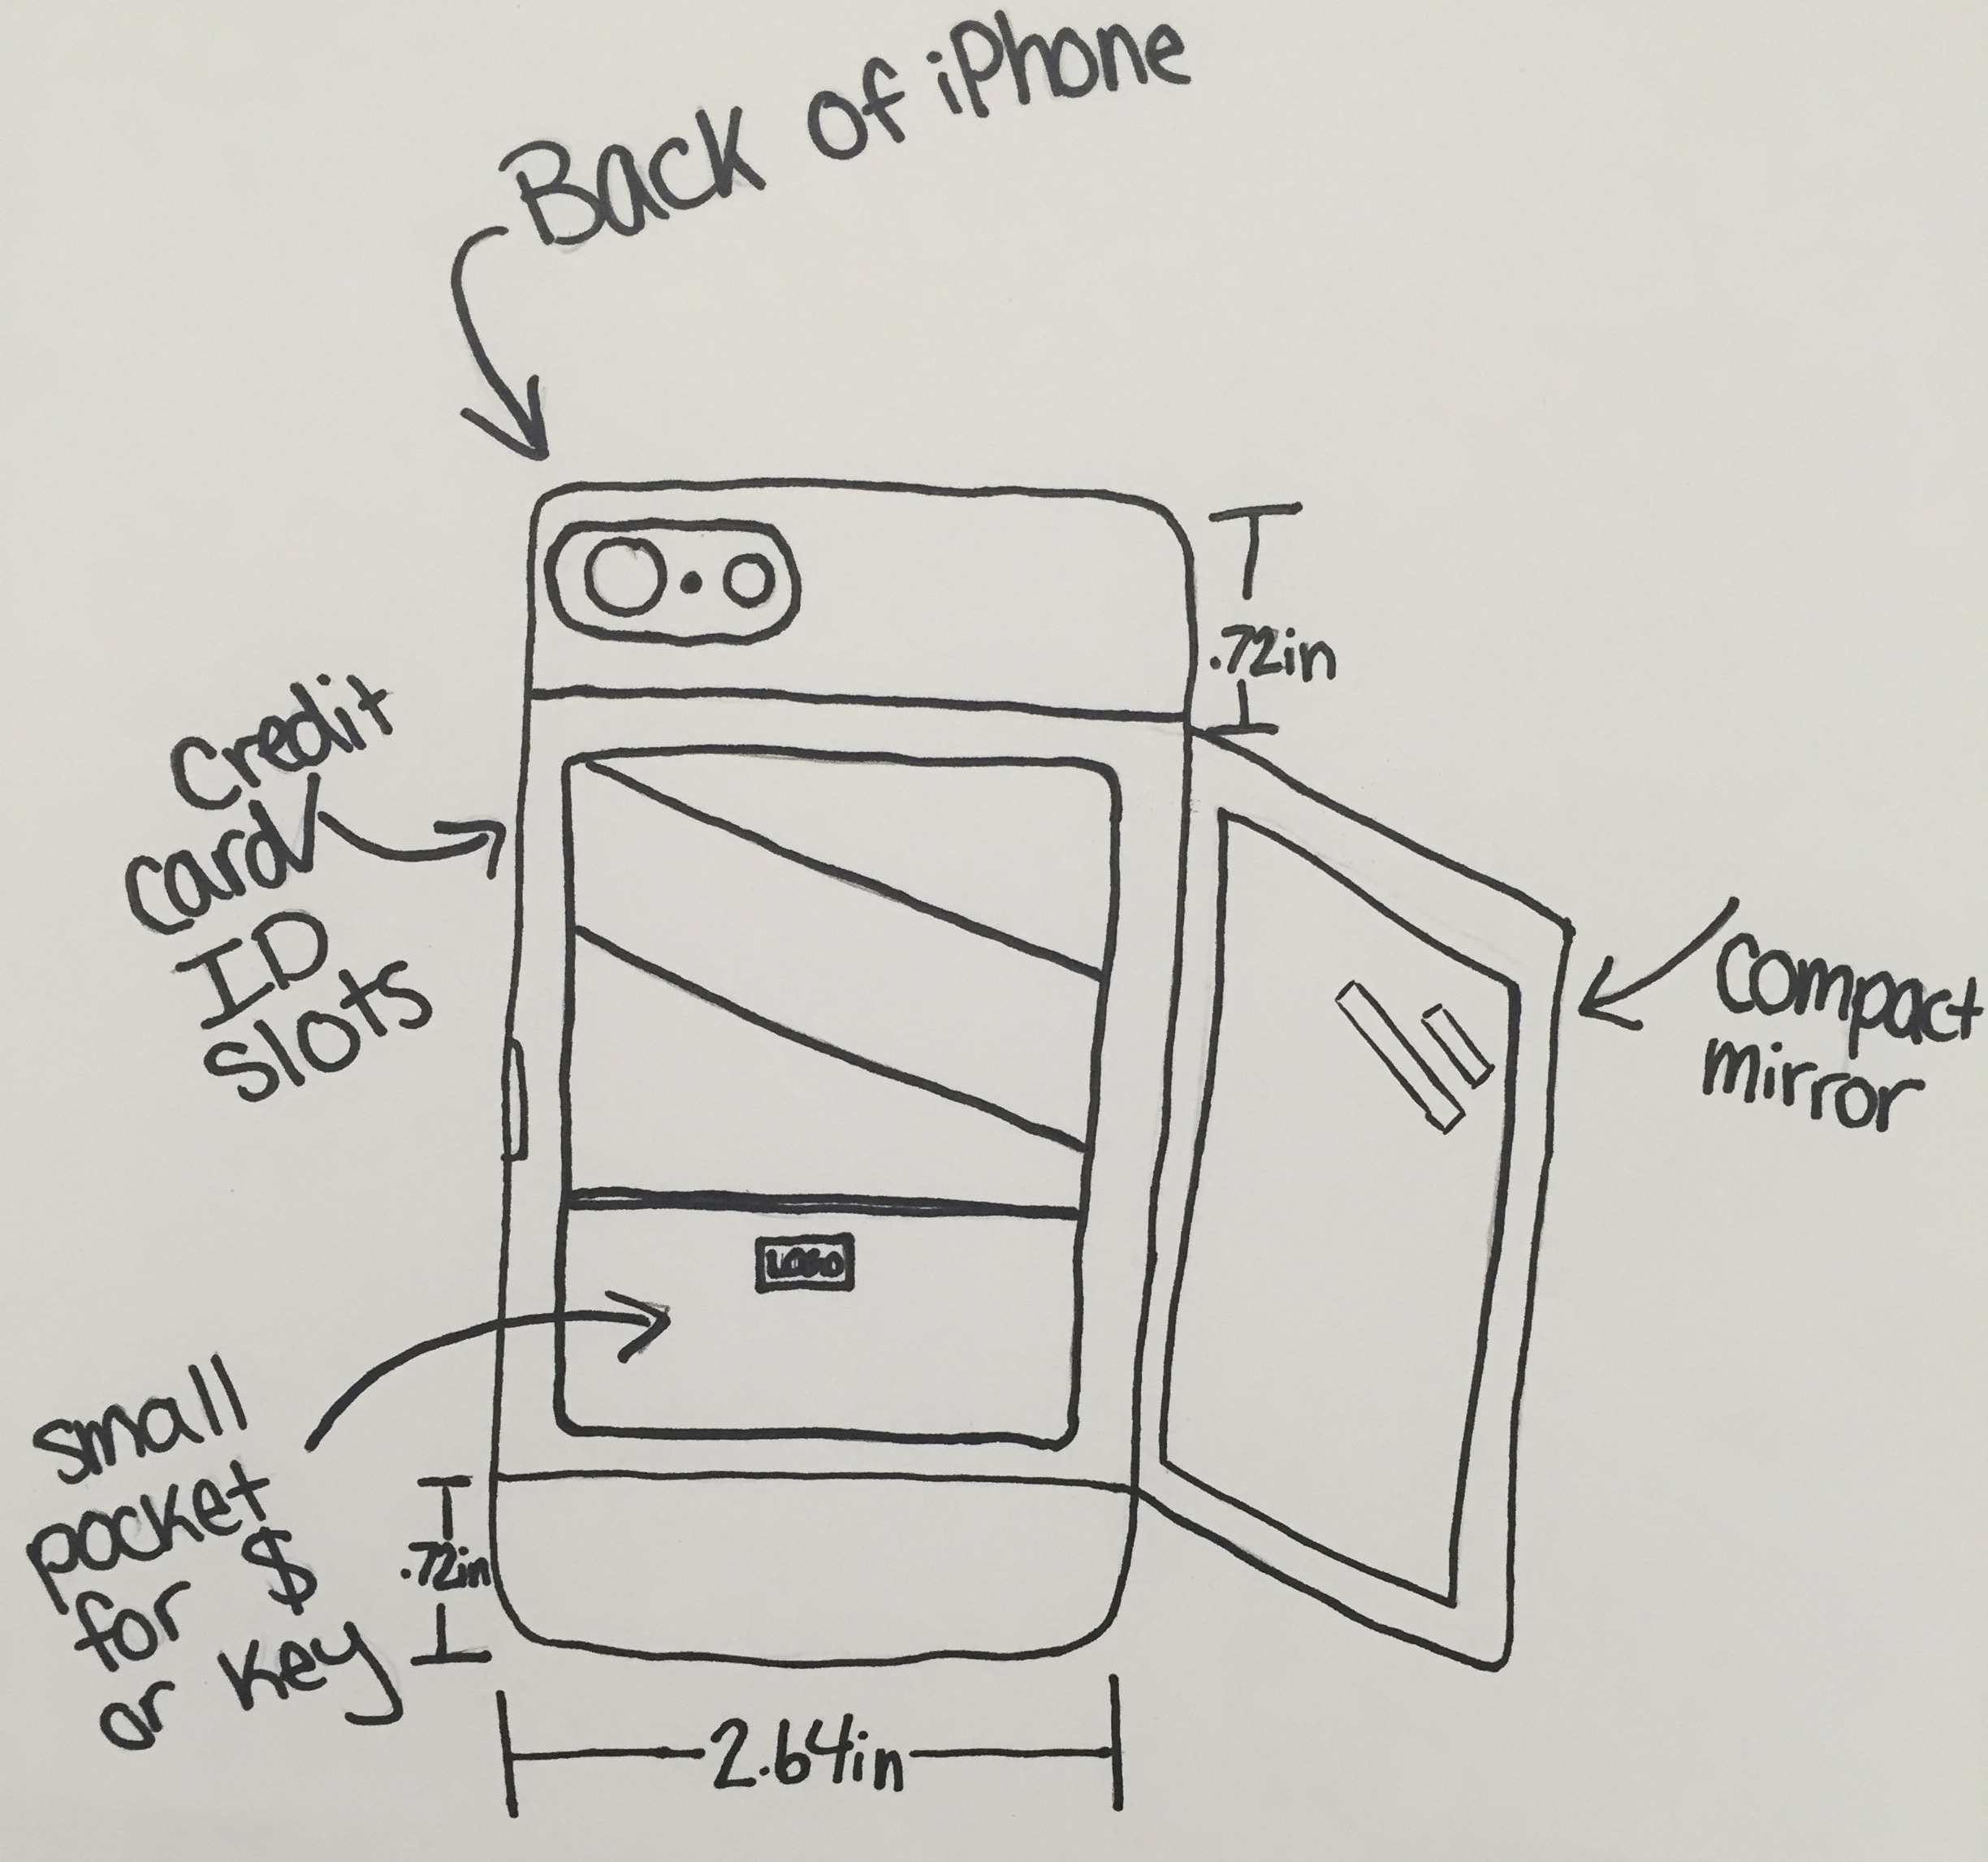 Back of iPhone
.72in
Credit
card/
ID
slots
compact
mirror
LOGO
small
pocket
for $
or key
.72in
2.64in